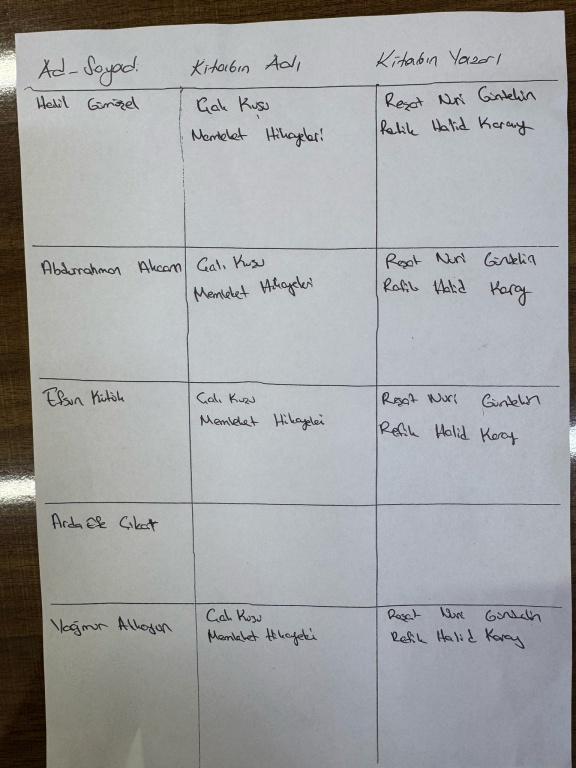 Ad-Soyad. Kitabın Adı Kitabın Yazarı
Halil Gümüşel Çalı Kuşu Reşat Nuri Güntekin
Memleket Hikayeleri Refik Halid Karay
Abdurrahman Akcam Çalı Kuşu Reşat Nuri Güntekin
Memleket Hikayeleri Refik Halid Karay
Efsun Kütük Çalı Kuşu Reşat Nuri Güntekin
Memleket Hikayeleri Refik Halid Karay
Arda Efe Çıkat
Yağmur Alkoyun Çalı Kuşu Reşat Nuri Güntekin
Memleket Hikayeleri Refik Halid Karay